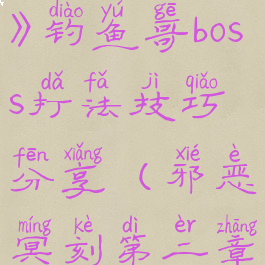 diào yú gē
》钓鱼哥bos
dǎ fǎ jì qiǎo
s打法技巧
fēn xiǎng xié è
分享（邪恶
míng kè dì èr zhāng
冥刻第二章